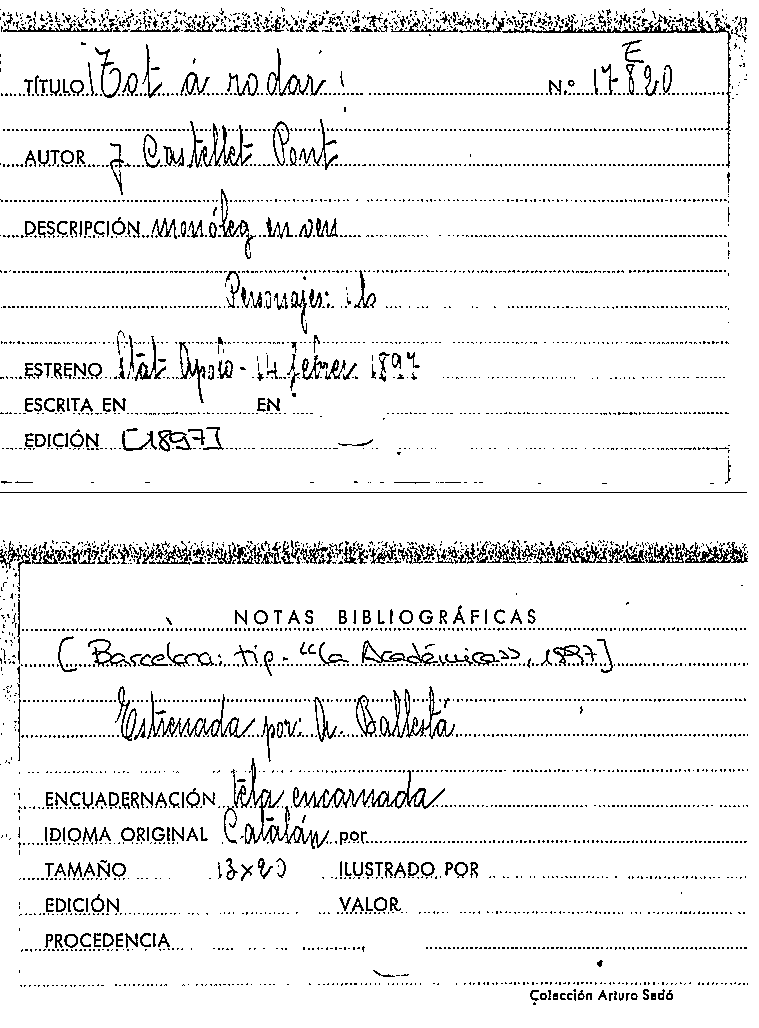 E
TÍTULO ¡Tot á rodar! N.º 17.820
AUTOR J Castellet Pont
DESCRIPCIÓN monóleg en vers
Personajes: 1
ESTRENO Apolo - 14 febrer 1897
ESCRITA EN EN
EDICIÓN [1897]
NOTAS BIBLIOGRÁFICAS
[Barcelona: tip. "La Académica", 1897]
Estrenada por: A. Ballestá
ENCUADERNACIÓN tela encarnada
IDIOMA ORIGINAL Catalán por
TAMAÑO 13x20 ILUSTRADO POR
EDICIÓN VALOR
PROCEDENCIA
Colección Arturo Sedó